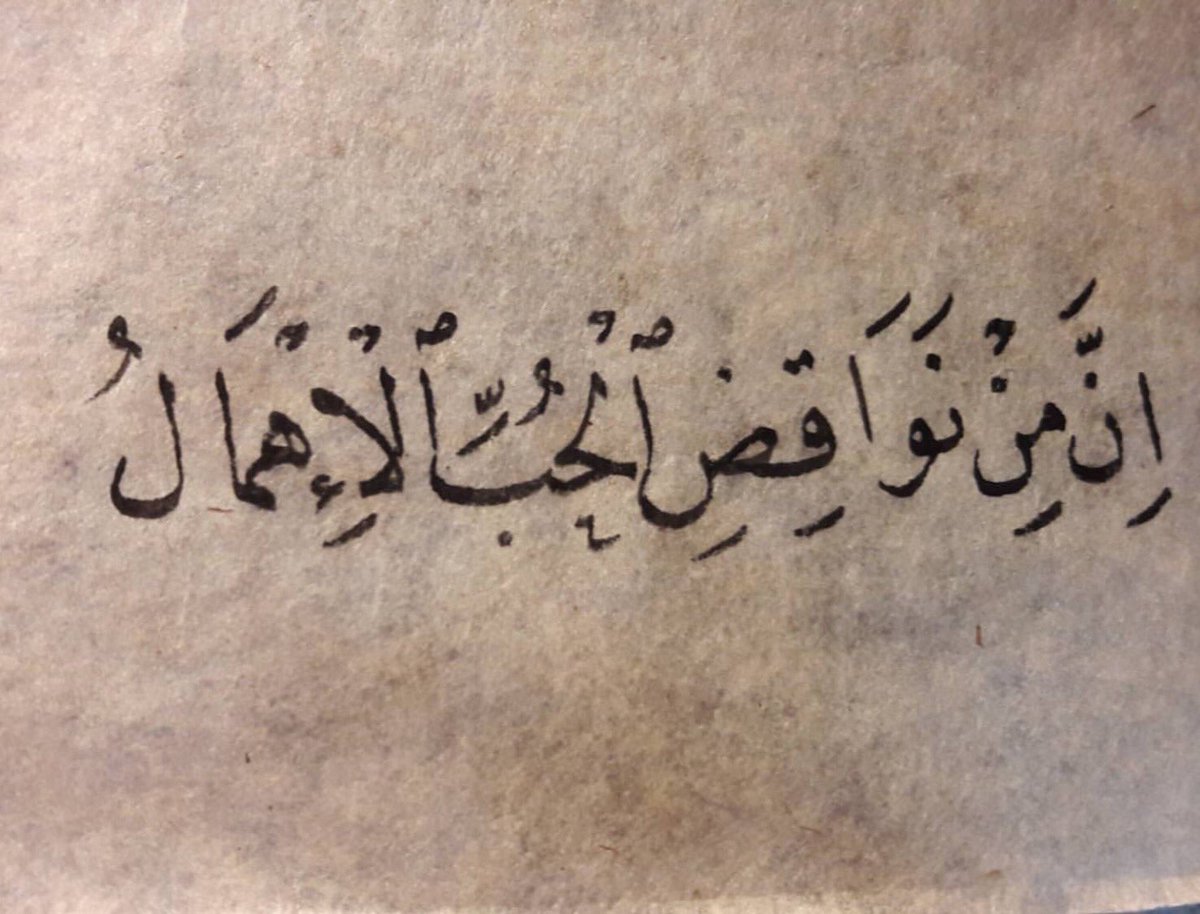 اِنَّ مِنْ نَوَاقِضِ ٱلْحُبِّ ٱلْإِهْمَالُ